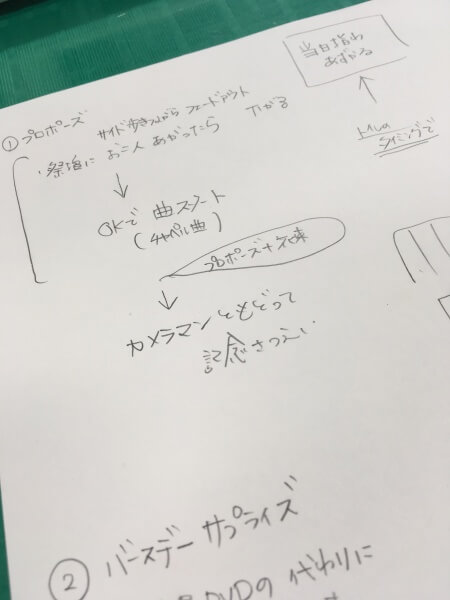 当日指わ
あずかる
トイレの
タイミングで
① プロポーズ
サイド歩きながら フェードアウト
・祭壇に お二人 あがったら 下がる
OKで 曲スタート
(チャペル曲)
プロポーズ+
カメラマンともどって
記念さつえい
② バースデー サプライズ
DVDの 代わりに